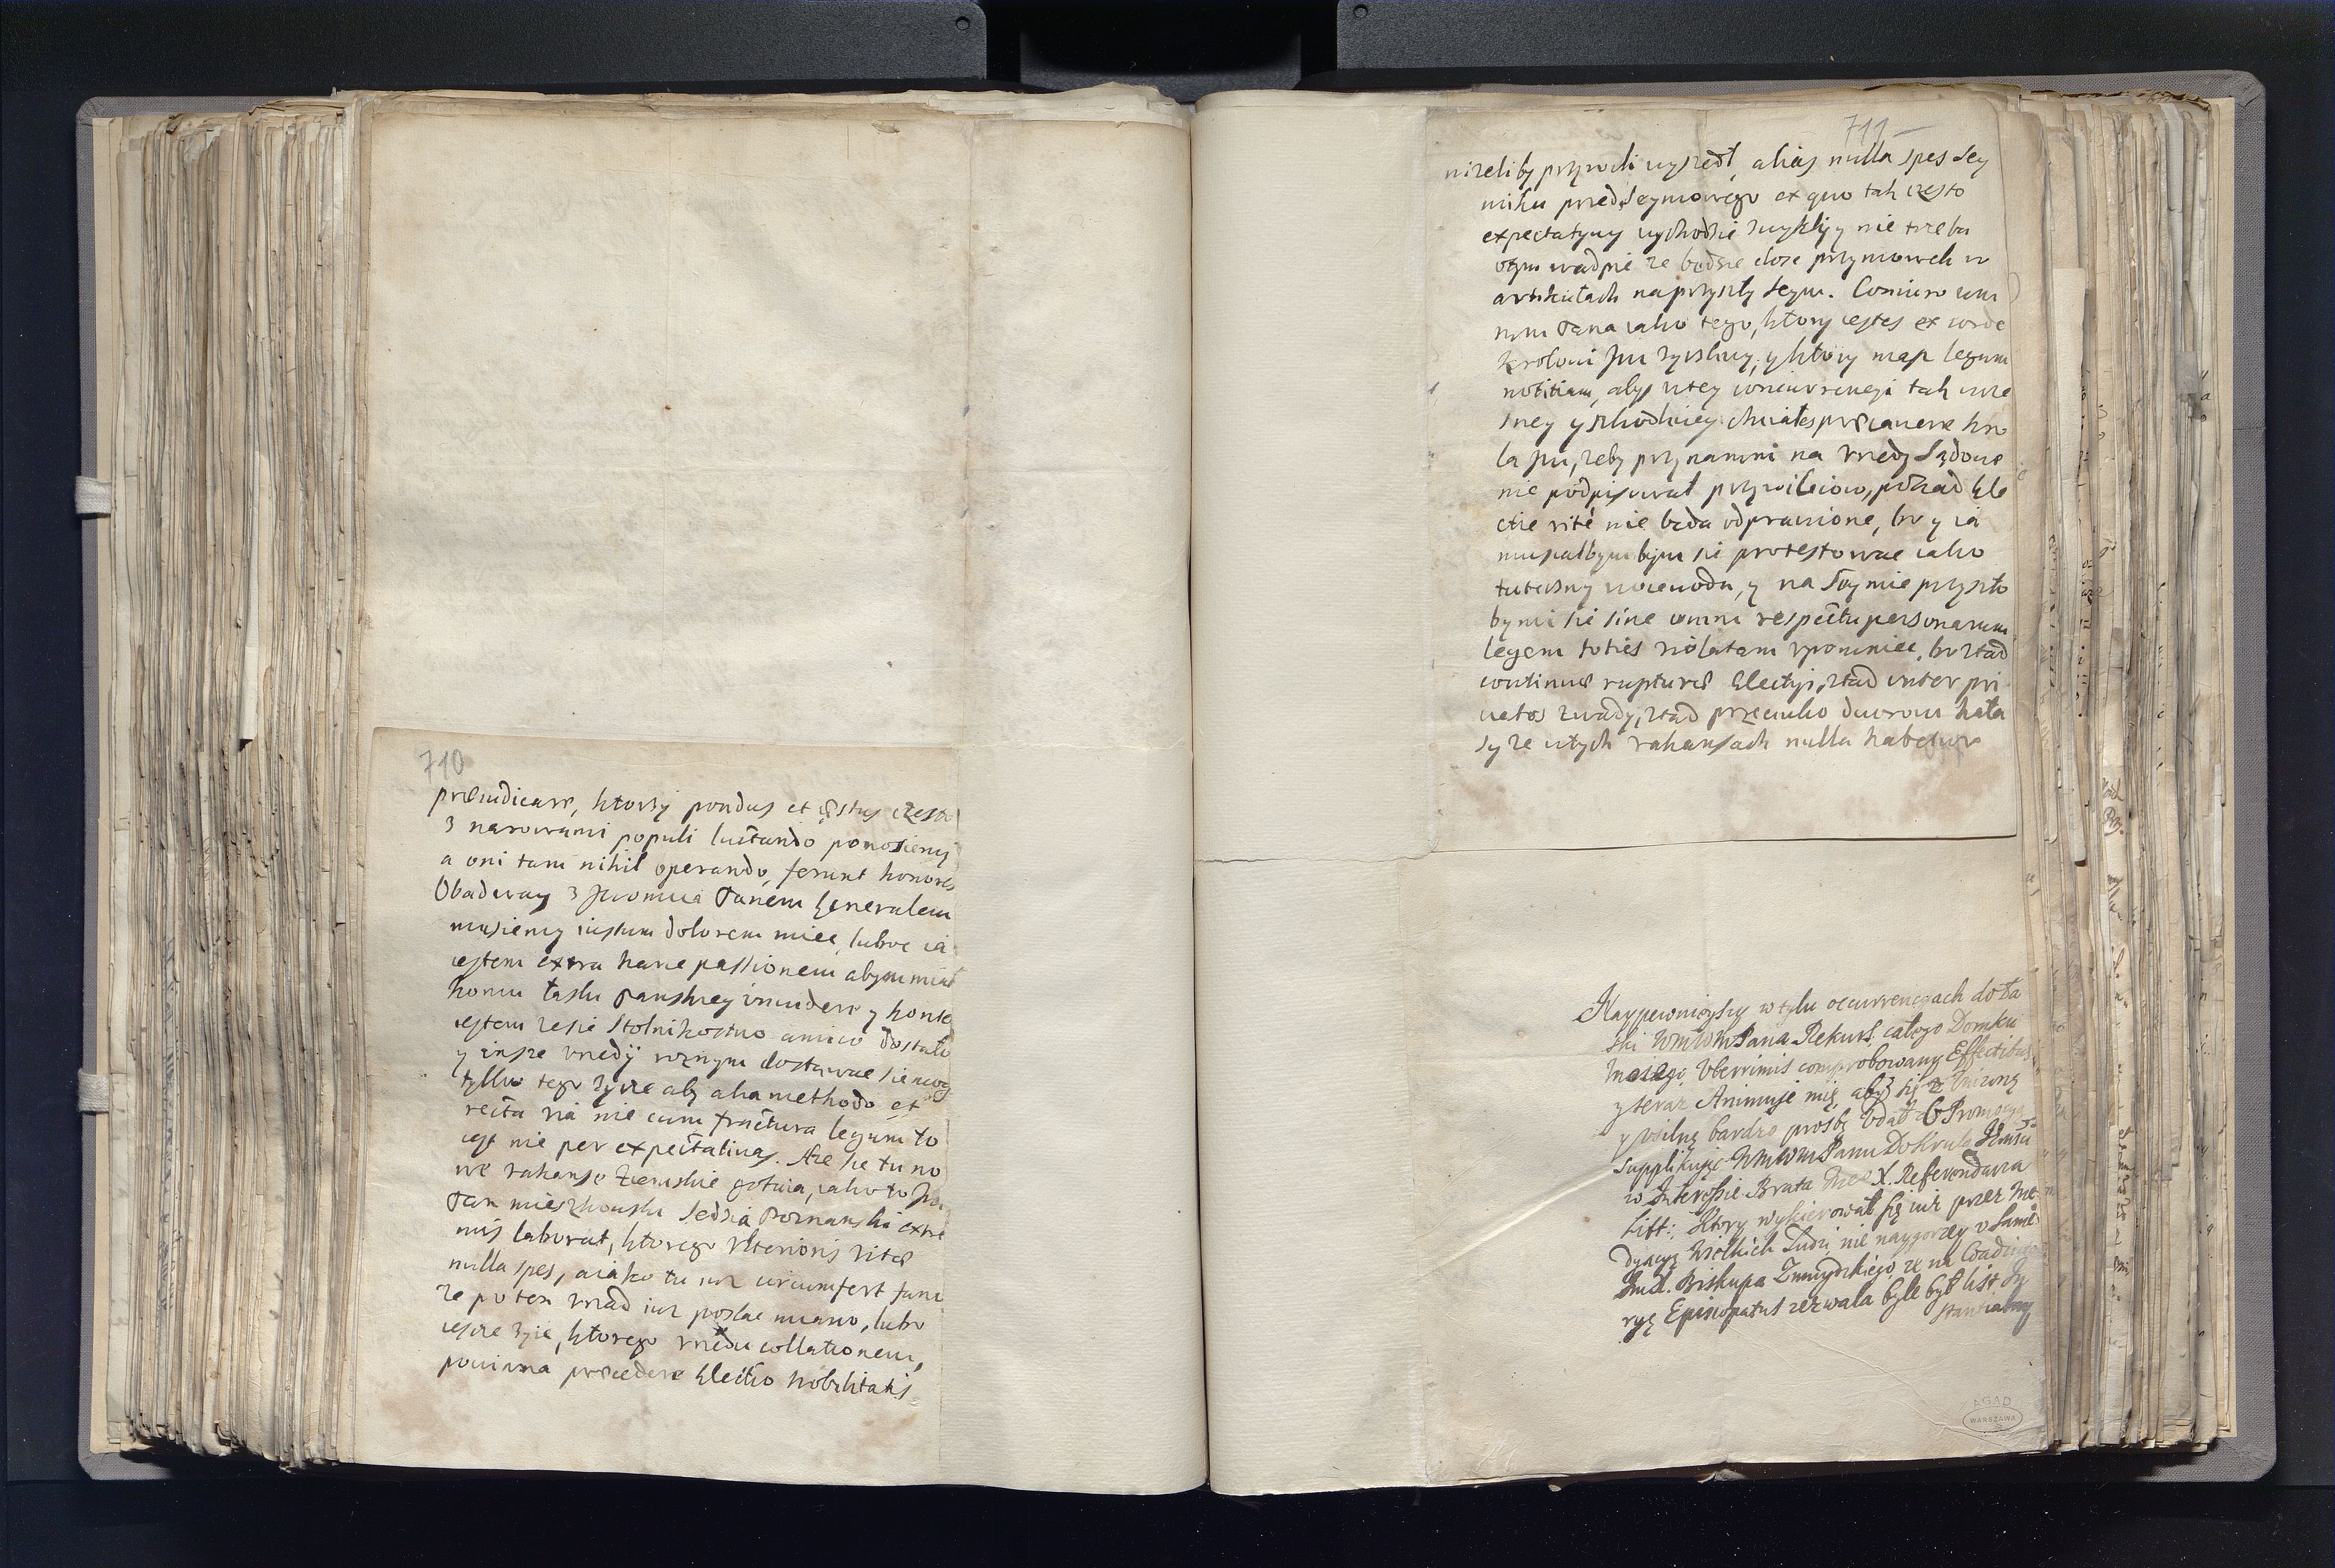 710
præiudicare, ktorzy pondus et æstus czesto
z narowami populi luctando ponosiemy
a oni tam nihil operando, ferunt honores
Obadway z Jmomcia Panem Generalem
musiemy iustum dolorem miec, luboc ia
iestem extra hanc passionem abym miał
komu łaski Panskiey inuidere y konte
iestem zesie Stolnikostwo amico dostało
y insze vrzędy roznym dostawac sie mog
tylko tego zycze aby alia methodo et
recta via nie cum fractura legum to
iest nie per expectatiuas. Aze sie tu no
we vakanse Ziemskie gotuia, iako to Jm
Pan Mieszkowski Sedzia Poznanski extre
mis laborat, ktorego vlterioris vitæ
nulla spes, a iako tu iuz circumfert fama
ze po ten vrzad iuz poslac miano, lubo
iescze zyie, ktorego vrzedu collationem,
powinna præcedere Electio Nobilitatis
711
nizeliby przywili wyszedł, alias nulla spes Sey
miku przedSeymowego ex quo tak czesto
expectatywy wychodzic zwykły y nie trzeba
otym watpic ze będzie dosc przymowek w
artikułach naprzyszły Seym. Coniuro
Pana iako tego, ktory iestes ex corde
Krolowi Jm zyczliwy, y ktory masz legum
notitiam, abys wtey concurrencyi tak wcze
sney y szkodliwey chciałes præcauere Kro
la Jm, zeby przynamni na Vrzędy Sądowe
nie podpisował przywileiow, pokad Ele
ctie rité nie będa odprawione, bo y ia
musiałbym bym sie protestowac iako
tuteiszny woiewoda, y na Seymie przyszło
by mi sie sine omni respectu personarum
legem toties violatam vpomniec, bo ztad
continuæ rupturæ Electyi, ztad inter pri
uatos zwady, ztad przeciwko dworowi hała
sy ze wtych vakansach nulla habetur
Naypewnieyszy w tylu occurrencyach do ła
ski WmWmPana Rekurs, całego Domku
mojego Vberrimis comprobowany Effectibus
y teraz Animuje mię, abym się z Vnizoną
y vsilną bardzo prosbą vdał o Promocyą
supplikując WmWmPanu Do Krola Jmści
w Interessie Brata mego X. Referendarza
Litt: ktory wykierował się iuz przez Me
dyacyą Wielkich Ludzi nie naygorzey v Same
Jmci. Biskupa Zmuydzkiego, ze na Coadiuto
ryą Episcopatus zezwala byle był list In
stantialny
AGAD
WARSZAWA